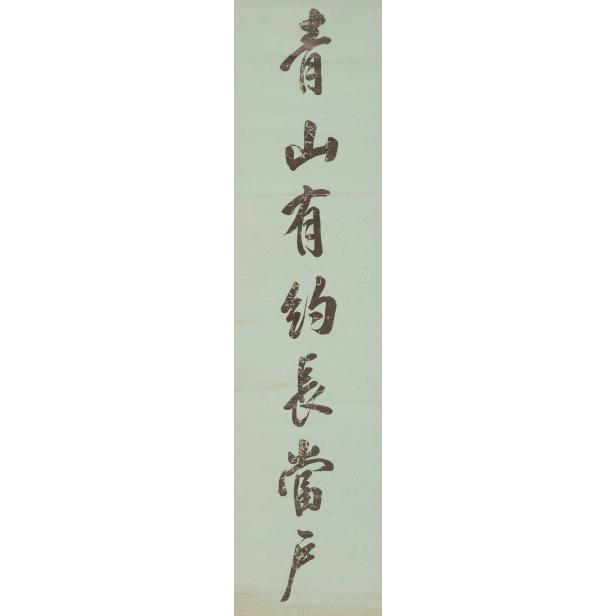 青山有約長當戶